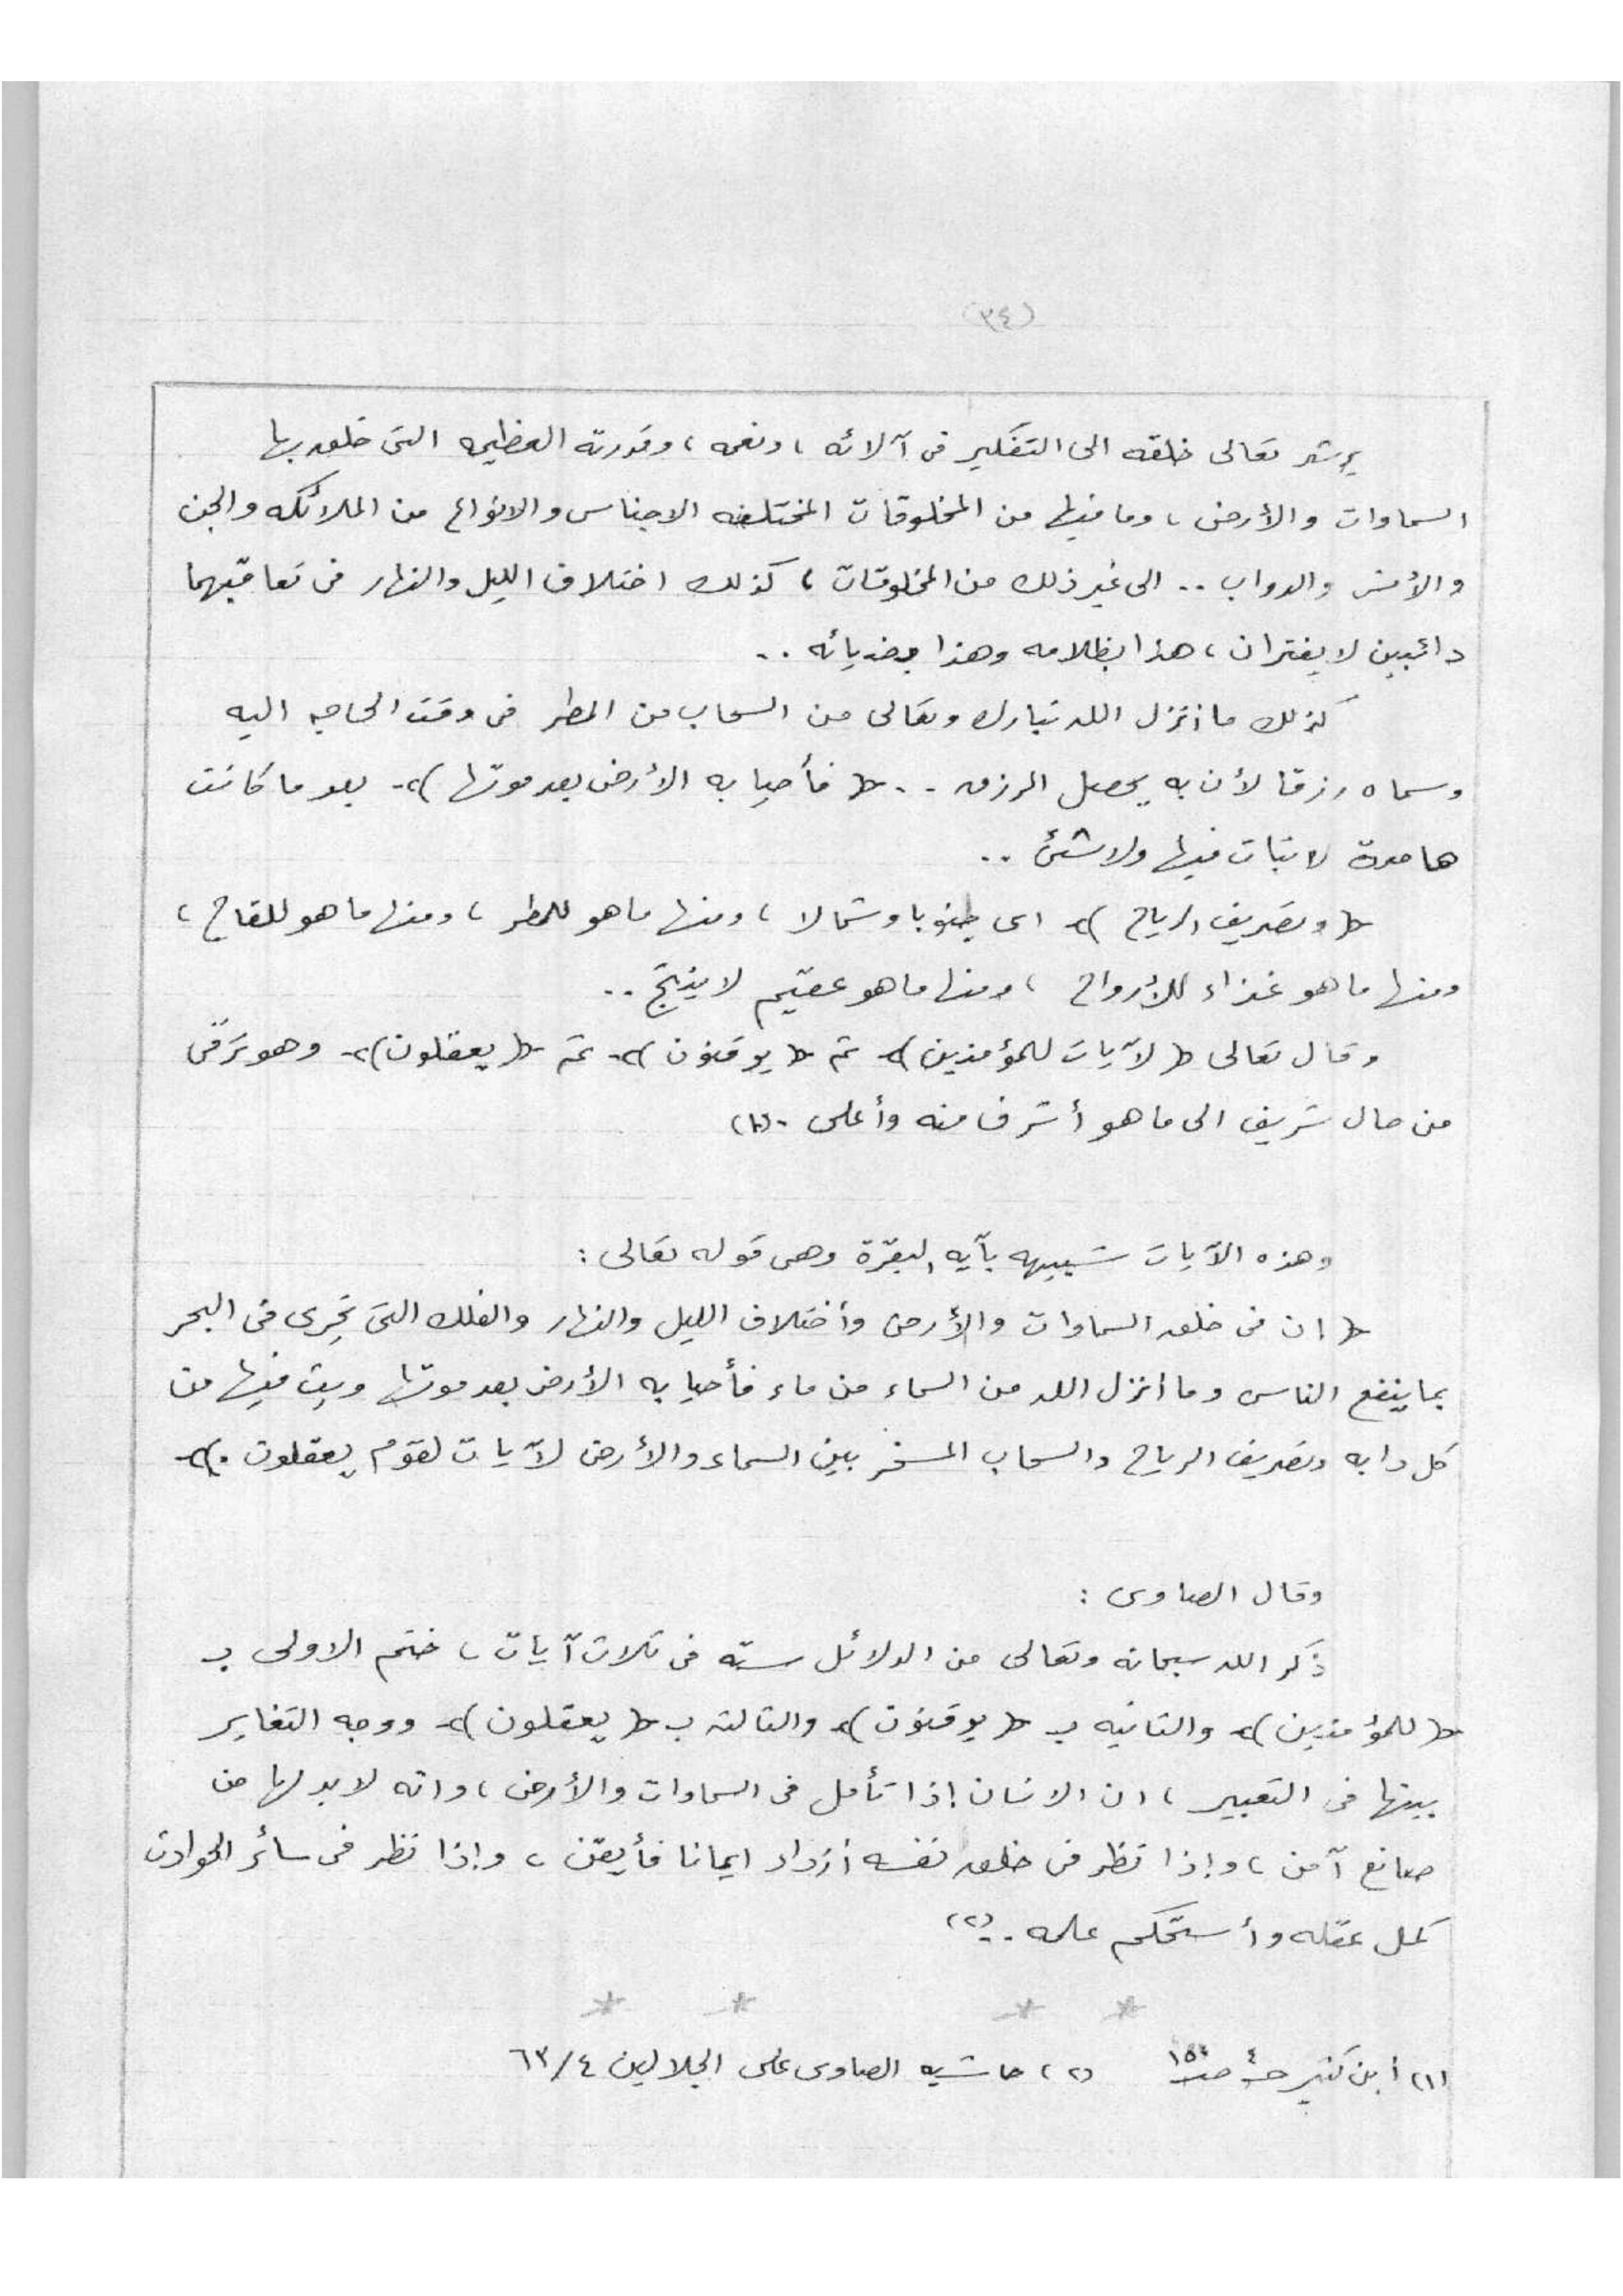 (٣٤)
يرشد تعالى خلقه الى التفكير فى آلائه ، ونعمه ، وقدرته العظيمه التى خلق بها
السماوات والأرض ، وما فيها من المخلوقات المختلفه الاجناس والانواع من الملائكه والجن
والأنس والدواب .. الى غير ذلك من المخلوقات ، كذلك اختلاف الليل والنهار فى تعاقبهما
دائبين لا يفتران ، هذا بظلامه وهذا بضيائه ..
كذلك ما انزل الله تبارك وتعالى من السحاب من المطر فى وقت الحاجه اليه
وسماه رزقا لأن به يحصل الرزق .. ﴿ فأحيا به الأرض بعد موتها ﴾ بعد ما كانت
هامدة لا نبات فيها ولا شئ ..
﴿ وتصريف الرياح ﴾ اى جنوبا وشمالا ، ومنها ما هو للمطر ، ومنها ما هو للقاح ،
ومنها ما هو غذاء للأرواح ، ومنها ما هو عقيم لا ينتج ..
وقال تعالى ﴿ لآيات للمؤمنين ﴾ ثم ﴿ يوقنون ﴾ ثم ﴿ يعقلون ﴾ وهو ترقى
من حال شريف الى ما هو أشرف منه وأعلى . (١)
وهذه الآيات شبيهه بآيه البقرة وهى قوله تعالى :
﴿ ان فى خلق السماوات والأرض وأختلاف الليل والنهار والفلك التى تجرى فى البحر
بما ينفع الناس وما أنزل الله من السماء من ماء فأحيا به الأرض بعد موتها وبث فيها من
كل دابه وتصريف الرياح والسحاب المسخر بين السماء والأرض لآيات لقوم يعقلون . ﴾
وقال الصاوى :
ذكر الله سبحانه وتعالى من الدلائل سته فى ثلاث آيات ، ختم الاولى بـ
﴿ للمؤمنين ﴾ والثانيه بـ ﴿ يوقنون ﴾ والثالثه بـ ﴿ يعقلون ﴾ ووجه التغاير
بينها فى التعبير ، ان الانسان إذا تأمل فى السماوات والأرض ، وانه لا بد لها من
صانع آمن ، وإذا نظر فى خلق نفسه أزداد ايمانا فأيقن ، وإذا نظر فى سائر الحوادث
كمل عقله وأستحكم علمه . (٢)
* * * *
(١) أبن كثير حـ ٤ صـ (٢) حاشيه الصاوى على الجلالين ٤/ ٦٣